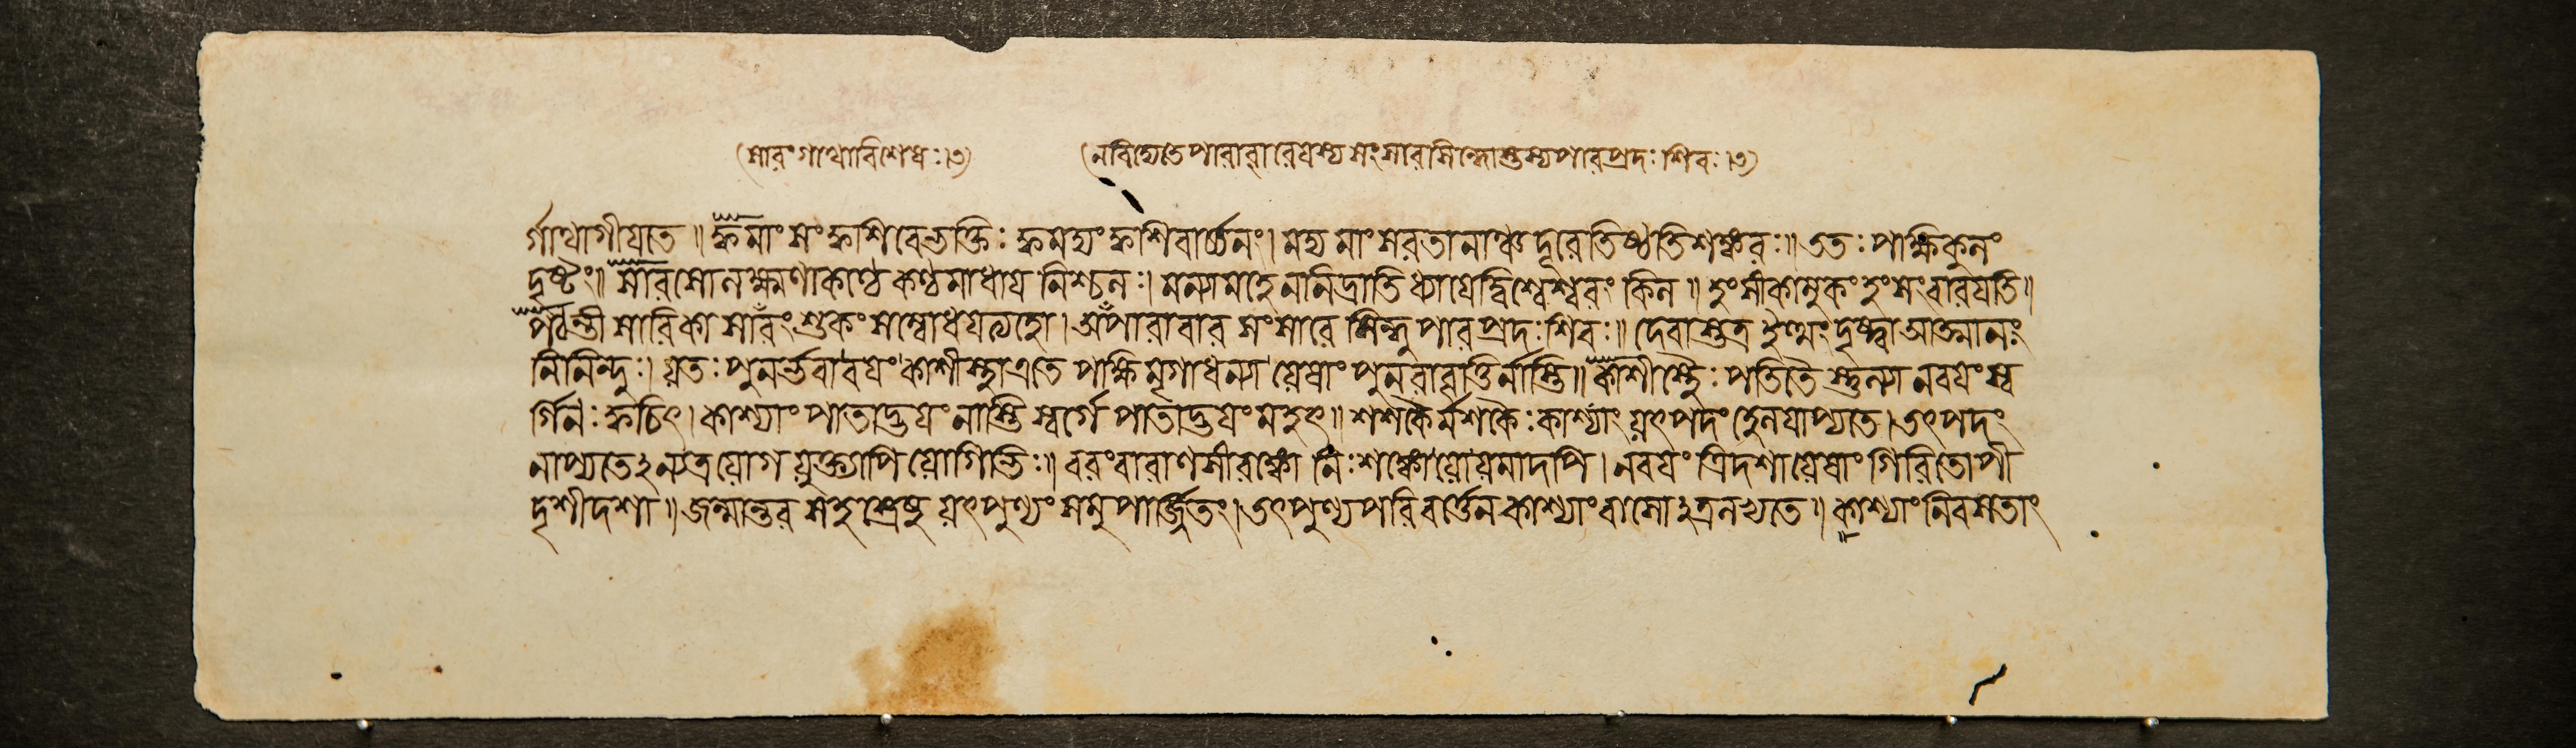 (সারং গাথাবিশেষঃ।৩) (ন বিদ্যতে পারাবারে যস্য সংসারসিন্ধোস্তস্য পারপ্রদঃ শিবঃ।৩)
র্গাথা গীয়তে॥ ক্ব মাংসং ক্ব শিবে ভক্তিঃ ক্ব মদ্যং ক্ব শিবার্চ্চনং। মদ্য মাংসরতানাঞ্চ দূরে তিষ্ঠতি শঙ্করঃ॥ এতঃ পাক্ষিকুনং
দৃষ্টং॥ সারসো লক্ষ্মণাকণ্ঠে কণ্ঠমাধায় নিশ্চলঃ। মন্যামহে ন নিদ্রাতি ধ্যায়েদ্বিশ্বেশ্বরং কিল॥ হংসী কামুকং হংসং বারয়তি॥
পঠন্তী সারিকা সারং শুকং সম্বোধয়ত্যহো। অপারাবার সংসারে সিন্ধু পারপ্রদঃ শিবঃ॥ দেবাস্তত্র ইত্থং দৃষ্ট্বা আত্মানং
নিনিন্দুঃ। যতঃ পুনর্ভবা বয়ং কাশীস্থা এতে পাক্ষিমৃগা ধন্যা যেষাং পুনরাবৃত্তির্নাস্তি॥ কাশীস্থৈঃ পতিতৈস্তুল্যা ন বয়ং স্ব
র্গিনঃ ক্বচিৎ। কাশ্যাং পাতাদ্ভয়ং নাস্তি স্বর্গে পাতাদ্ভয়ং মহৎ॥ শশকৈর্মশকৈঃ কাশ্যাং যৎপদং হেলয়াপ্যতে। তৎপদং
নাপ্যতেঽন্যত্র যোগযুক্ত্যাপি যোগিভিঃ॥ বরং বারাণসীরঙ্কো নিঃশঙ্কো যো যমাদপি। ন বয়ং ত্রিদশা যেষাং গিরিতোপী
দৃশী দশা॥ জন্মান্তর সহস্রেষু যৎপুণ্যং সমুপার্জ্জিতং। তৎপুণ্যপরিবর্ত্তেন কাশ্যাং বাসোঽত্র লভ্যতে॥ কাশ্যাং নিবসতাং